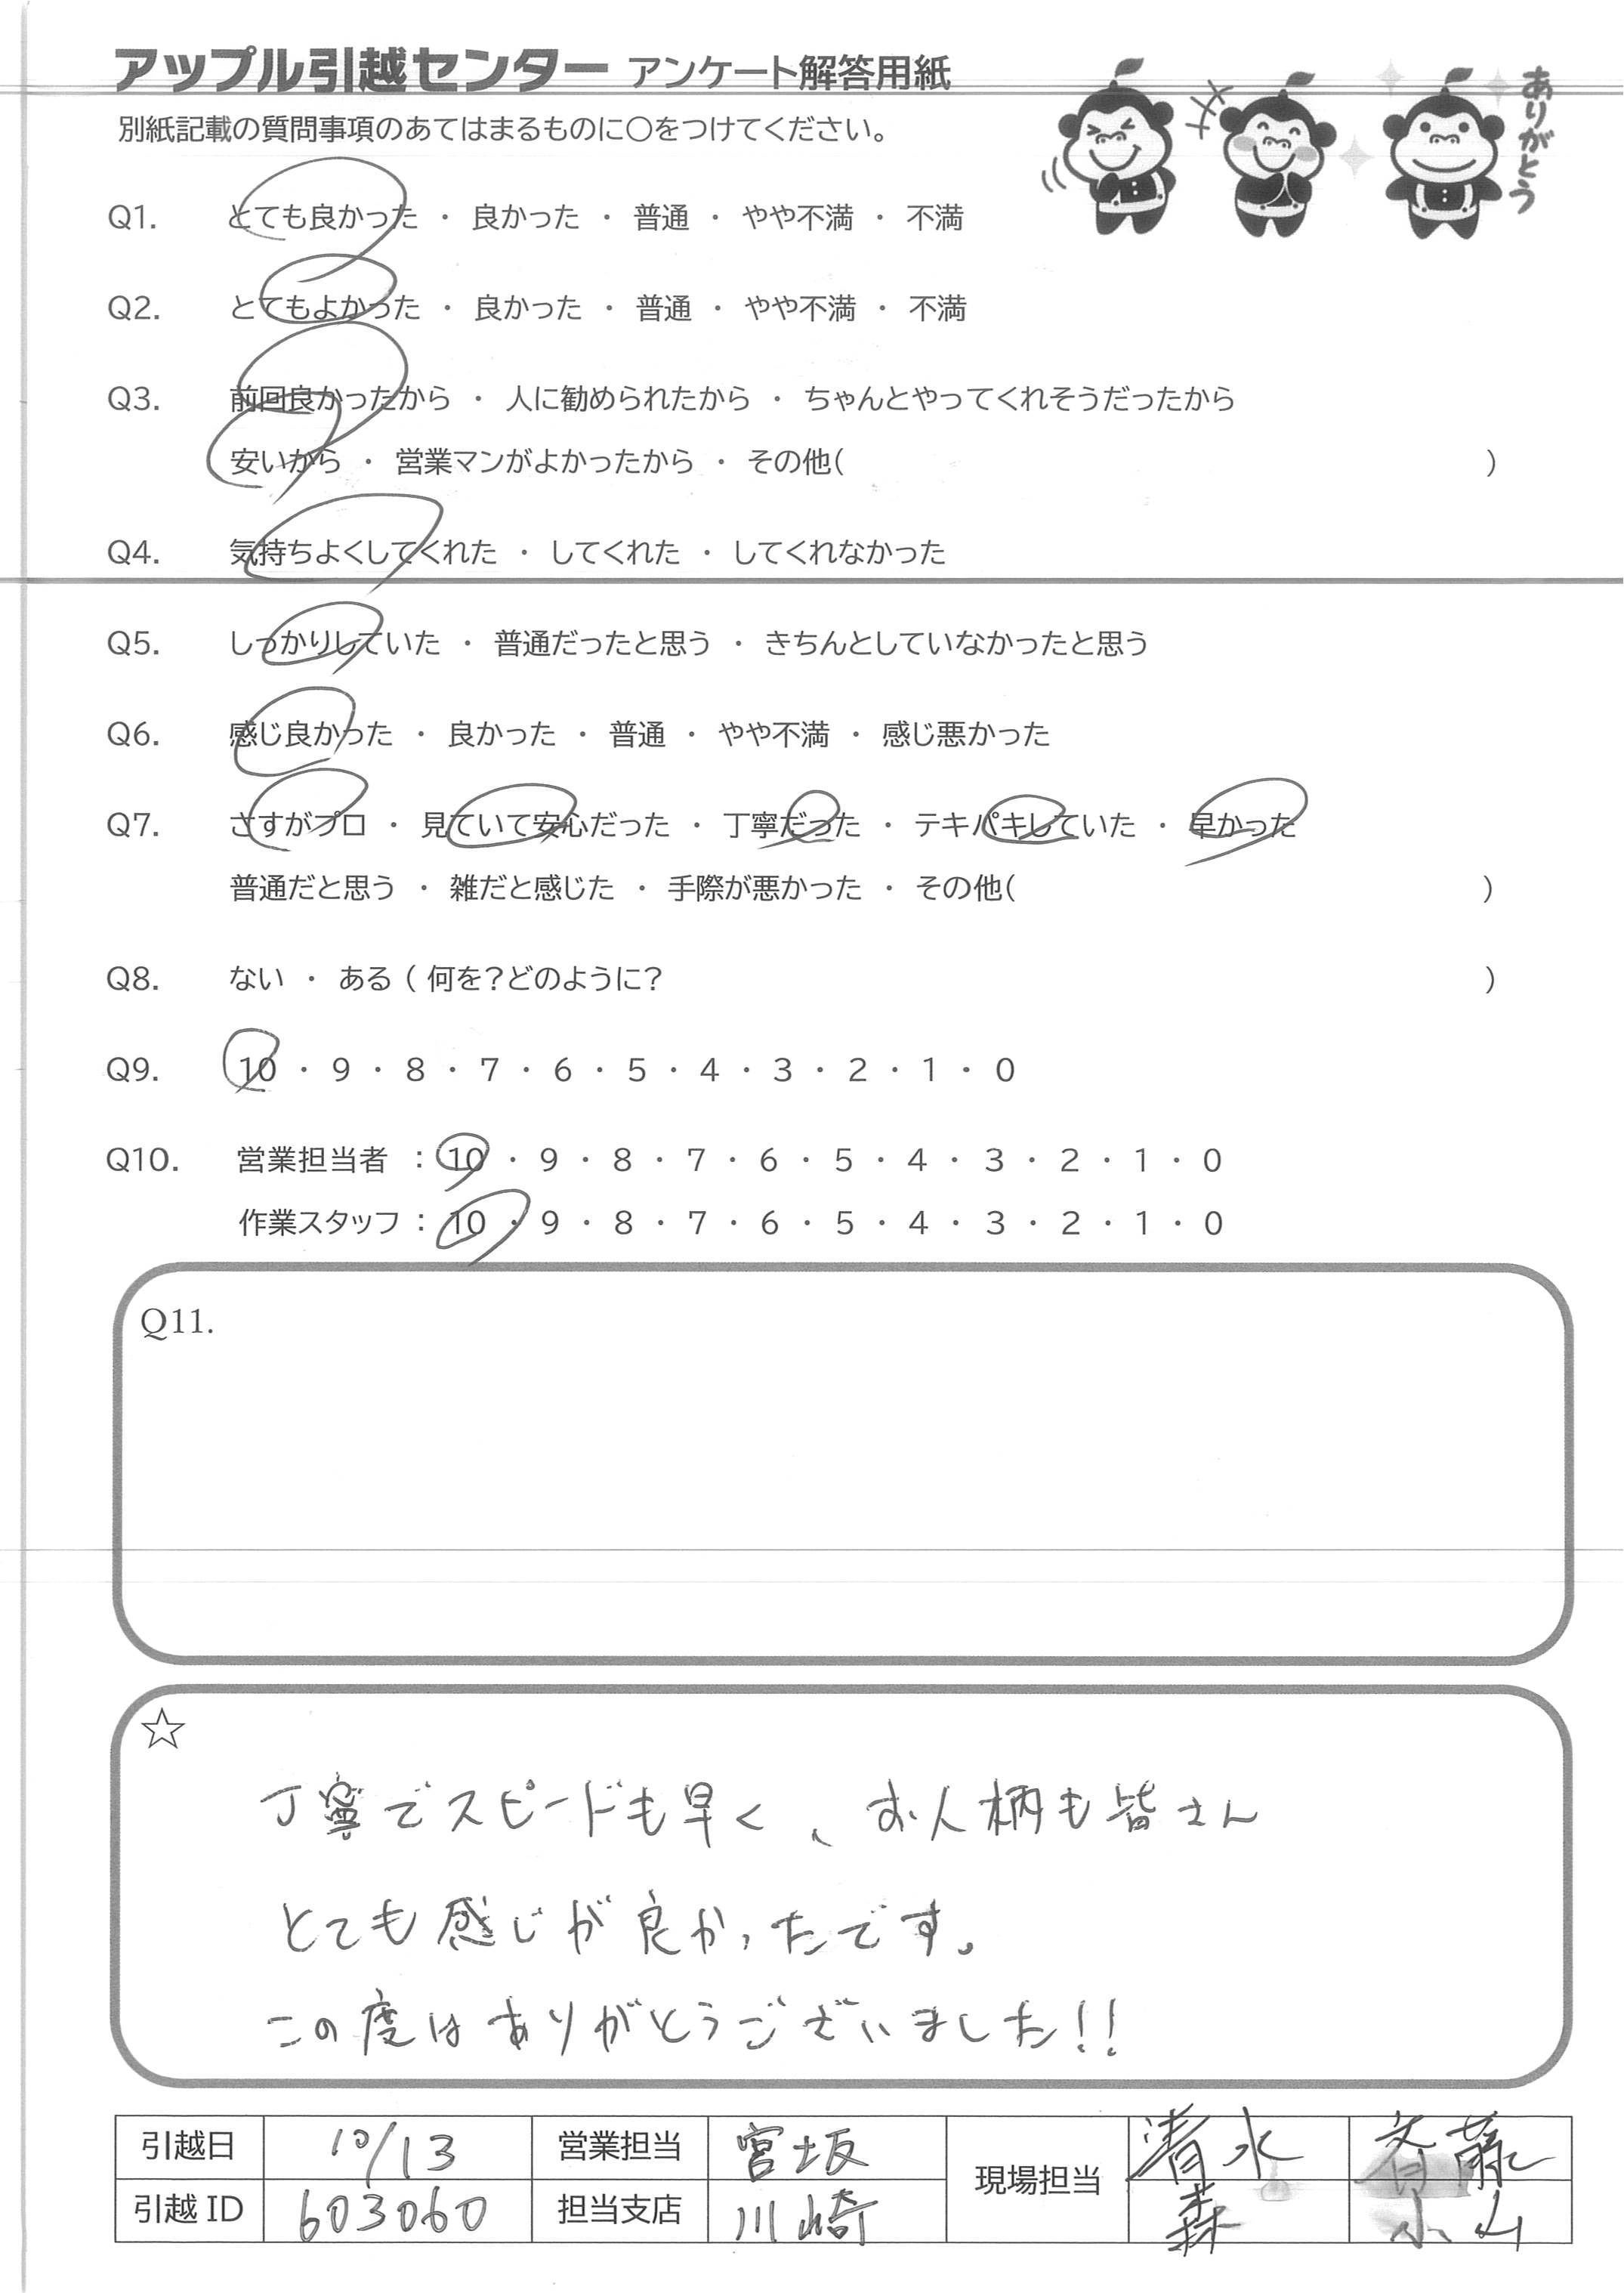 アップル引越センター アンケート解答用紙
別紙記載の質問事項のあてはまるものに○をつけてください。
ありがとう
Q1. とても良かった ・ 良かった ・ 普通 ・ やや不満 ・ 不満
Q2. とてもよかった ・ 良かった ・ 普通 ・ やや不満 ・ 不満
Q3. 前回良かったから ・ 人に勧められたから ・ ちゃんとやってくれそうだったから
安いから ・ 営業マンがよかったから ・ その他( )
Q4. 気持ちよくしてくれた ・ してくれた ・ してくれなかった
Q5. しっかりしていた ・ 普通だったと思う ・ きちんとしていなかったと思う
Q6. 感じ良かった ・ 良かった ・ 普通 ・ やや不満 ・ 感じ悪かった
Q7. さすがプロ ・ 見ていて安心だった ・ 丁寧だった ・ テキパキしていた ・ 早かった
普通だと思う ・ 雑だと感じた ・ 手際が悪かった ・ その他( )
Q8. ない ・ ある ( 何を?どのように? )
Q9. 10 ・ 9 ・ 8 ・ 7 ・ 6 ・ 5 ・ 4 ・ 3 ・ 2 ・ 1 ・ 0
Q10. 営業担当者 : 10 ・ 9 ・ 8 ・ 7 ・ 6 ・ 5 ・ 4 ・ 3 ・ 2 ・ 1 ・ 0
作業スタッフ : 10 ・ 9 ・ 8 ・ 7 ・ 6 ・ 5 ・ 4 ・ 3 ・ 2 ・ 1 ・ 0
Q11.
☆
丁寧でスピードも早く、お人柄も皆さん
とても感じが良かったです。
この度はありがとうございました!!
引越日 10/13 営業担当 宮坂 現場担当 清水 斉藤
引越 ID 603060 担当支店 川崎 森 小山